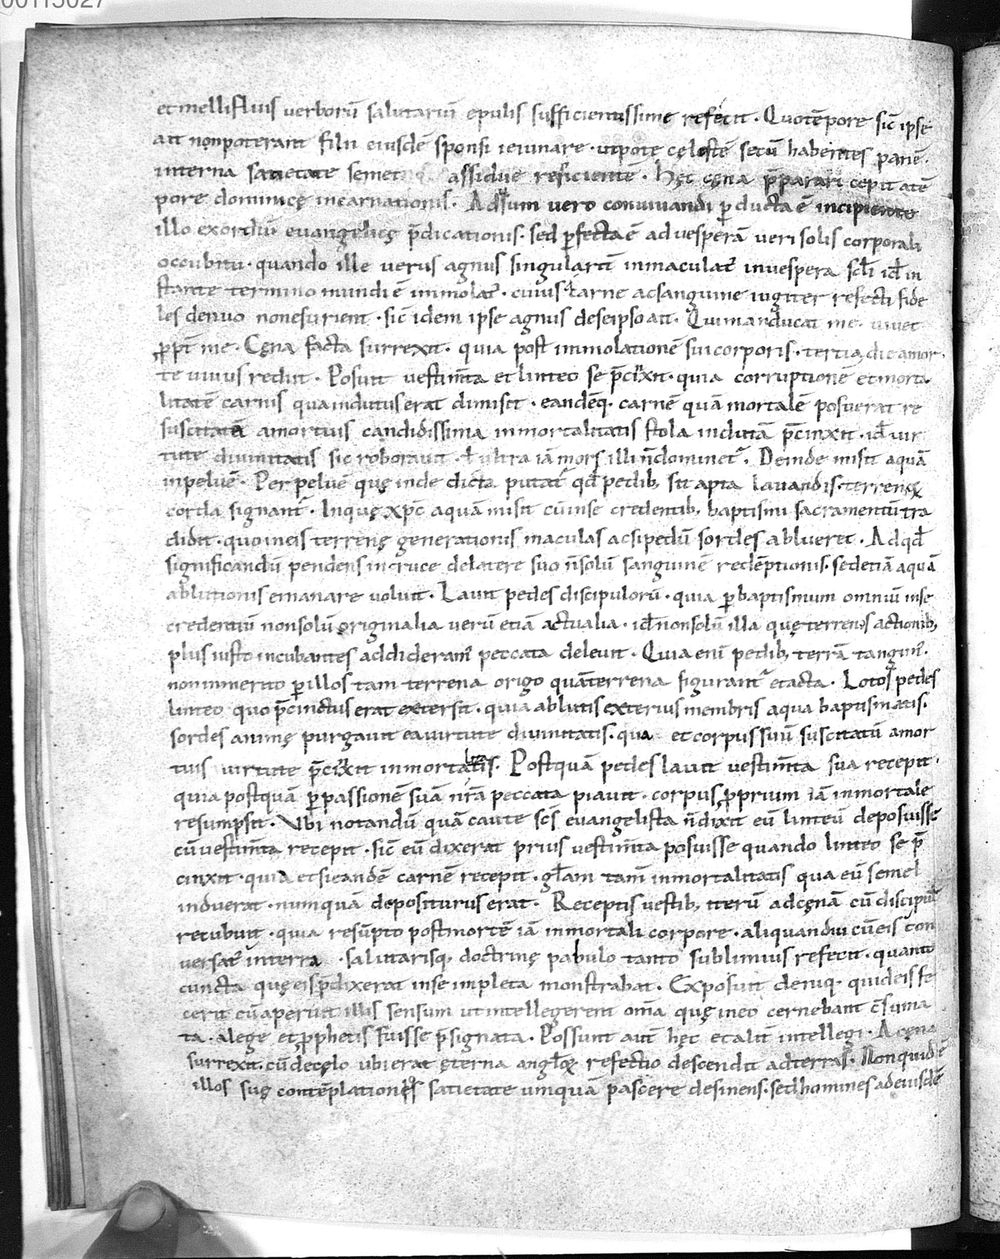 00115027
et mellifluis verborū salutariū epulis sufficientissime refecit · Quo tēpore sic̄ ipse
ait non poterant filii eiusdē sponsi ieiunare · utpote cęlestē secū habentes panē ·
interna satietate semet assidue reficiente · Hęc cęna p̄parari cepit a tē
pore dominicę incarnationis · Ad usum uero conuiuandi ꝑducta ē incipiente
illo exordiū euangelicę p̄dicationis · sed ꝑfecta ē ad uesperā ueri solis corporali
occubitu · quando ille uerus agnus singularit̄ inmaculat᷒ in uespera scłi id ē in
stante termino mundi ē immolat᷒ · cuius carne ac sanguine iugiter refecti fide
les denuo non esurient · sic̄ idem ipse agnus de se ipso ait · Qui manducat me · uiuet
ꝓpt̄ me · Cęna facta surrexit · quia post immolationē sui corporis · tertia die a mor
te uiuus rediit · Posuit uestim̄ta et linteo se p̄cinxit · quia corruptionē et morta
litatē carnis qua indutus erat dimisit · eandēq · carnē quā mortalē posuerat re
suscitatā a mortuis candidissima inmortalitatis stola indutā p̄cinxit · id ē uir
tute diuinitatis sic roborauit · ut ultra iā mors illi n̄ dominet᷒ · Deinde misit aquā
in peluē · Per peluē quę inde dicta putat᷒ qđ pedib; sit apta lauandis · terrenę
corda signant᷒ · In quę xp̄c aquā misit cū in se credentib; baptismi sacramentū tra
didit · quo in eis terrenę generationis maculas ac si pedū sordes ablueret · Ad qđ
significandū pendens in cruce de latere suo n̄ solū sanguinē redēptionis · sed etiā aquā
ablutionis emanare uoluit · Lauit pedes discipulorū · quia ꝑ baptismum omniū in se
credentiū non solū originalia uerū etiā actualia · id ē non solū illa quę terrenis actionib;
plus iusto incubantes addiderant peccata deleuit · Quia eni pedib; terrā tangim᷒ ·
non inmerito ꝑ illos tam terrena origo quā terrena figurant᷒ et acta · Lotos pedes
linteo quo p̄cinctus erat extersit · quia ablutis exterius membris aqua baptismatis ·
sordes animę purgauit ea uirtute diuinitatis · qua et corpus suū suscitatū a mor
tuis uirtute p̄cinxit inmortalis · Postquā pedes lauit uestim̄ta sua recepit ·
quia postquā ꝑ passionē suā nr̄a peccata piauit · corpus ꝓprium iā inmortale
resumpsit · Vbi notandū quā caute sc̄s euangelista n̄ dixit eū linteū deposuisse
cū uestim̄ta recepit · sic̄ eū dixerat prius uestim̄ta posuisse quando linteo se p̄
cinxit · quia et si eandē carnē recepit · głam tam̄ inmortalitatis qua eū semel
induerat · numquā depositurus erat · Receptis uestib; iterū ad cęnā cū discipulis
recubuit · quia resūpto post mortē iā inmortali corpore · aliquandiu cū eis con
uersat᷒ in terra · salutarisq; doctrinę pabulo tanto sublimius refecit · quanto
cuncta quę eis p̄dixerat in se impleta monstrabat · Exposuit deniq · quid eis fe
cerit cū aperuit illis sensum ut intellegerent om̄a quę in eo cernebant c̄suma
ta · a lege et ꝓphetis fuisse p̄signata · Possunt aut̄ hęc et alit̄ intellegi · A cęna
surrexit · cū de cęlo ubi erat ęterna anglo℞ refectio descendit ad terras · Non quidē
illos suę contēplationis satietate umquā pascere desinens · sed homines ad eiusdē